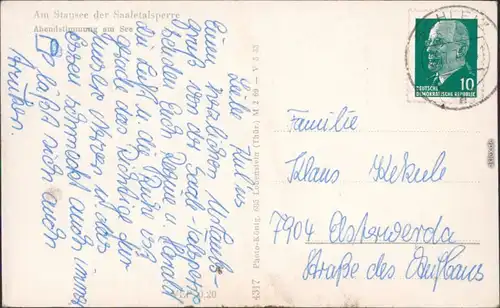 Am Stausee der Saaletalsperre
Abendstimmung am See
Liebe
einen herzlichen Urlaubs-
gruß von der Saale-Talsperre
senden Euch Regine u. Harald
die Luft u. die Ruhe ist
gerade das Richtige für
unsere Nerven u. das
Essen schmeckt auch immer.
läßt sich auch
4317 Photo-König, 685 Lobenstein (Thür.) M 2 60 - V 3 32
10
DEUTSCHE
DEMOKRATISCHE REPUBLIK
Familie
Klaus Kekule
7904 Elsterwerda
Straße des Aufbaus